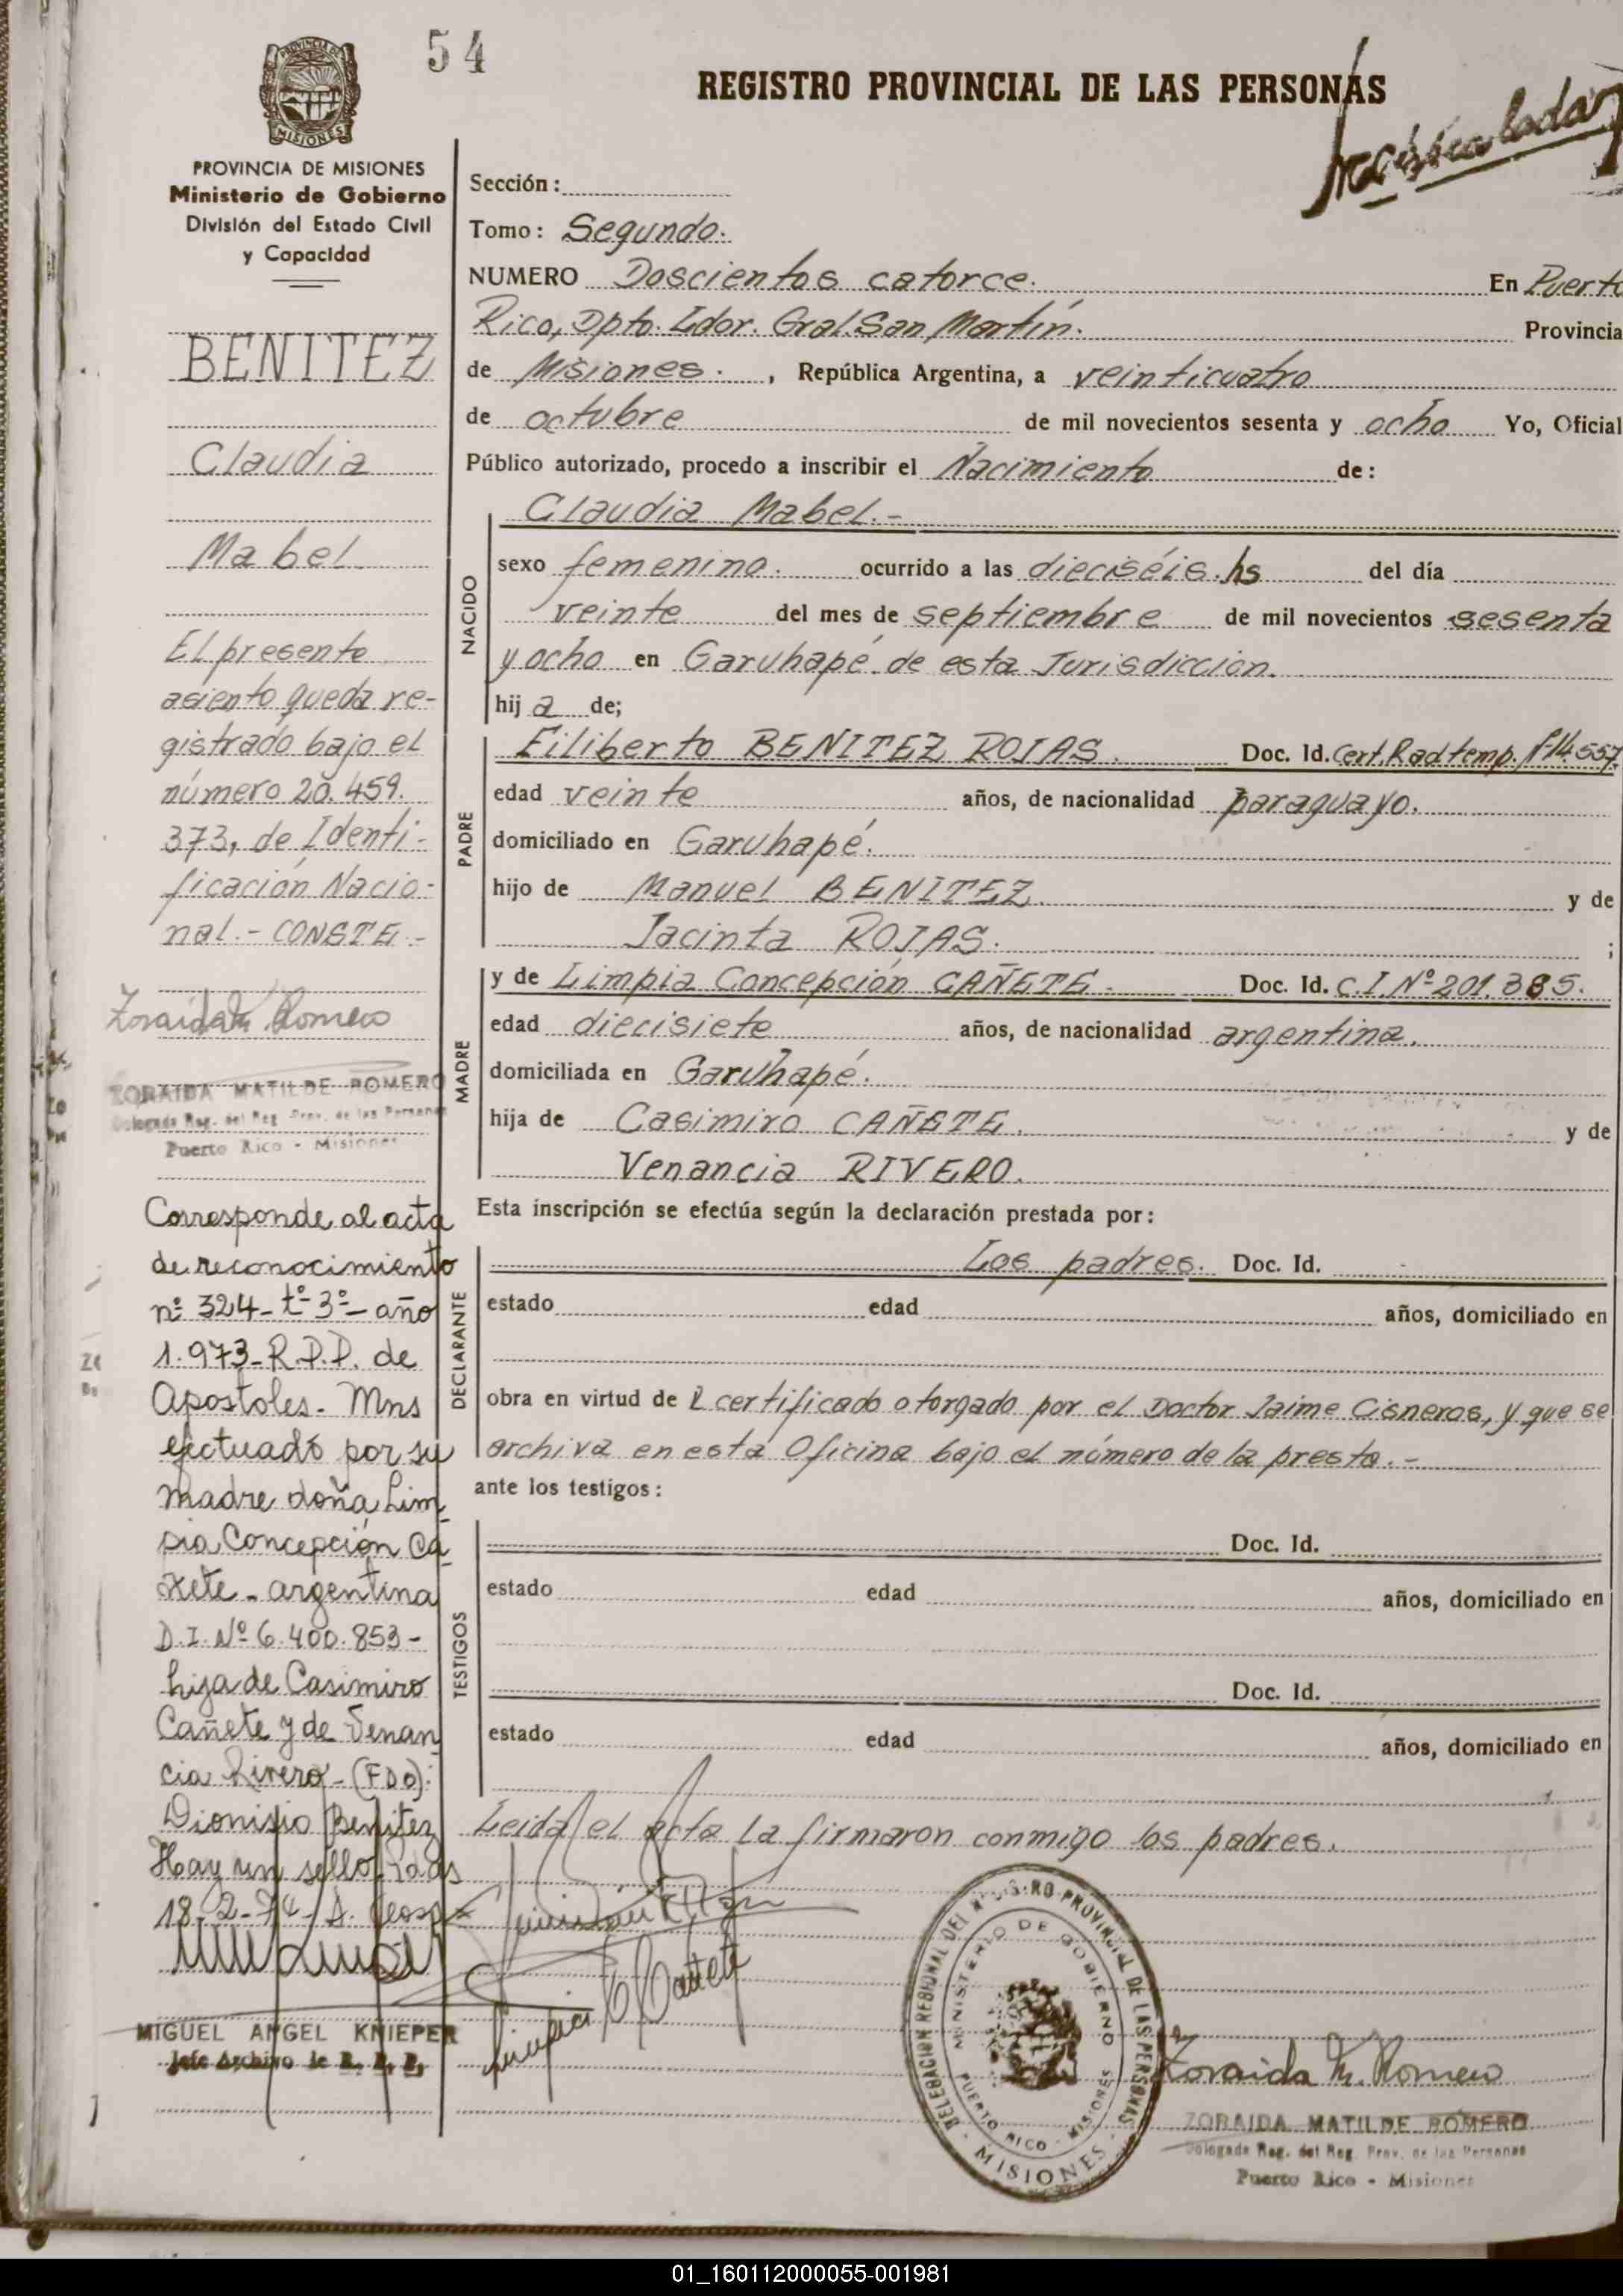 54
REGISTRO PROVINCIAL DE LAS PERSONAS
PROVINCIA DE
MISIONES
PROVINCIA DE MISIONES
Ministerio de Gobierno
División del Estado Civil
y Capacidad
BENITEZ
Claudia
Mabel
El presente
asiento queda re-
gistrado bajo el
número 20.459.
373, de Identi-
ficación Nacio-
nal.- CONSTE.-
Zoraida M. Romero
ZORAIDA MATILDE ROMERO
Delegada Reg. del Reg. Prov. de las Personas
Puerto Rico - Misiones
Corresponde al acta
de reconocimiento
nº 324- tº 3º- año
1.973- R.P.P. de
Apostoles- Mns
efectuado por su
madre doña Lim-
pia Concepción Ca-
ñete- argentina
D.I. Nº 6.400.853-
hija de Casimiro
Cañete y de Venan
cia Rivero- (FDO):
Dionisio Benitez
Hay un sello. Pdas
18-2-74-
MIGUEL ANGEL KNIEPER
Jefe Archivo de R. P. P.
Sección:
Tomo: Segundo.
NUMERO Doscientos catorce. En Puerto
Rico, Dpto. Ldor. Gral. San Martín. Provincia
de Misiones. , República Argentina, a veinticuatro
de octubre de mil novecientos sesenta y ocho Yo, Oficial
Público autorizado, procedo a inscribir el Nacimiento de:
NACIDO
Claudia Mabel.-
sexo femenino. ocurrido a las dieciséis. hs del día
veinte del mes de septiembre de mil novecientos sesenta
y ocho en Garuhapé. de esta Jurisdicción.
hij a de;
PADRE
Filiberto BENITEZ ROJAS. Doc. Id. Cert. Rad temp. 14.557.
edad veinte años, de nacionalidad paraguayo.
domiciliado en Garuhapé.
hijo de Manuel BENITEZ. y de
Jacinta ROJAS. ;
MADRE
y de Limpia Concepción CAÑETE. Doc. Id. C.I. Nº 201.385.
edad diecisiete años, de nacionalidad argentina.
domiciliada en Garuhapé.
hija de Casimiro CAÑETE. y de
Venancia RIVERO.
Esta inscripción se efectúa según la declaración prestada por:
DECLARANTE
Los padres. Doc. Id.
estado edad años, domiciliado en
obra en virtud de l certificado otorgado por el Doctor Jaime Cisneros, y que se
archiva en esta Oficina bajo el número de la presta.-
ante los testigos:
TESTIGOS
Doc. Id.
estado edad años, domiciliado en
Doc. Id.
estado edad años, domiciliado en
Leida el acta la firmaron conmigo los padres.
Limpia C Cañete
DELEGACION REGIONAL DEL REGISTRO PROVINCIAL DE LAS PERSONAS
MINISTERIO DE GOBIERNO
PUERTO RICO - MISIONES
- MISIONES -
Zoraida M. Romero
ZORAIDA MATILDE ROMERO
Delegada Reg. del Reg. Prov. de las Personas
Puerto Rico - Misiones
01_160112000055-001981